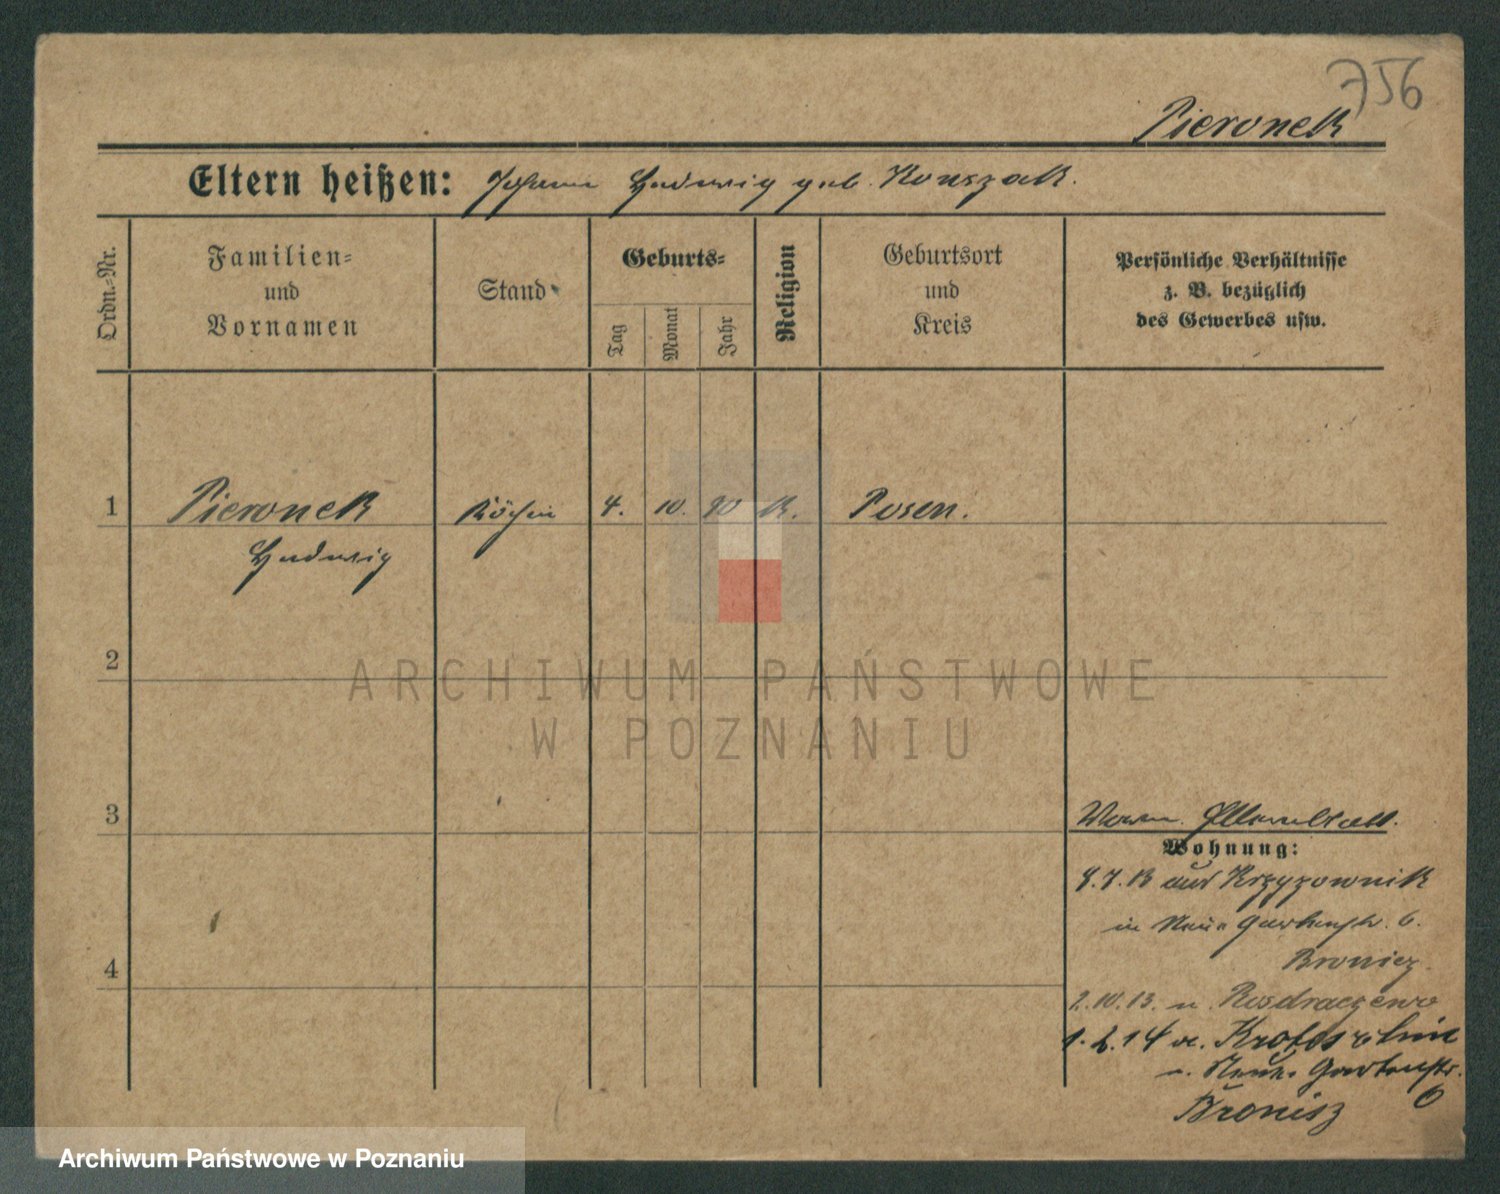 756
Pieronek
Eltern heißen: Johann Hedwig geb. Konszak.
Ordn.-Nr.
Familien-
und
Vornamen
Stand
Geburts-
Tag
Monat
Jahr
Religion
Geburtsort
und
Kreis
Persönliche Verhältnisse
z. B. bezüglich
des Gewerbes usw.
1 Pieronek Köchin 4. 10. 90 K. Posen.
Hedwig
2
ARCHIWUM PAŃSTWOWE
W POZNANIU
3
Wohnung:
8.7.13 aus Krzyzownik
in Neue Gartenstr. 6.
Bronisz
2.10.13. n. Rosdraczewo
1.2.14 v. Krotoschin
n. Neue Gartenstr.
6
Bronisz
4
Archiwum Państwowe w Poznaniu